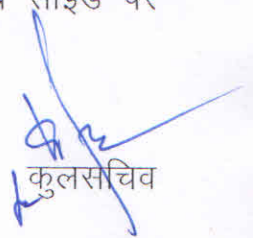 साइड पर
कुलसचिव